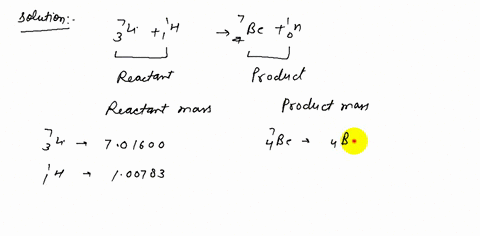 Solution:-
⁷₃Li + ¹₁H → ⁷₄Be + ¹₀n
Reactant Product
Reactant mass Product mass
⁷₃Li → 7.01600 ⁷₄Be → ₄B
¹₁H → 1.00783